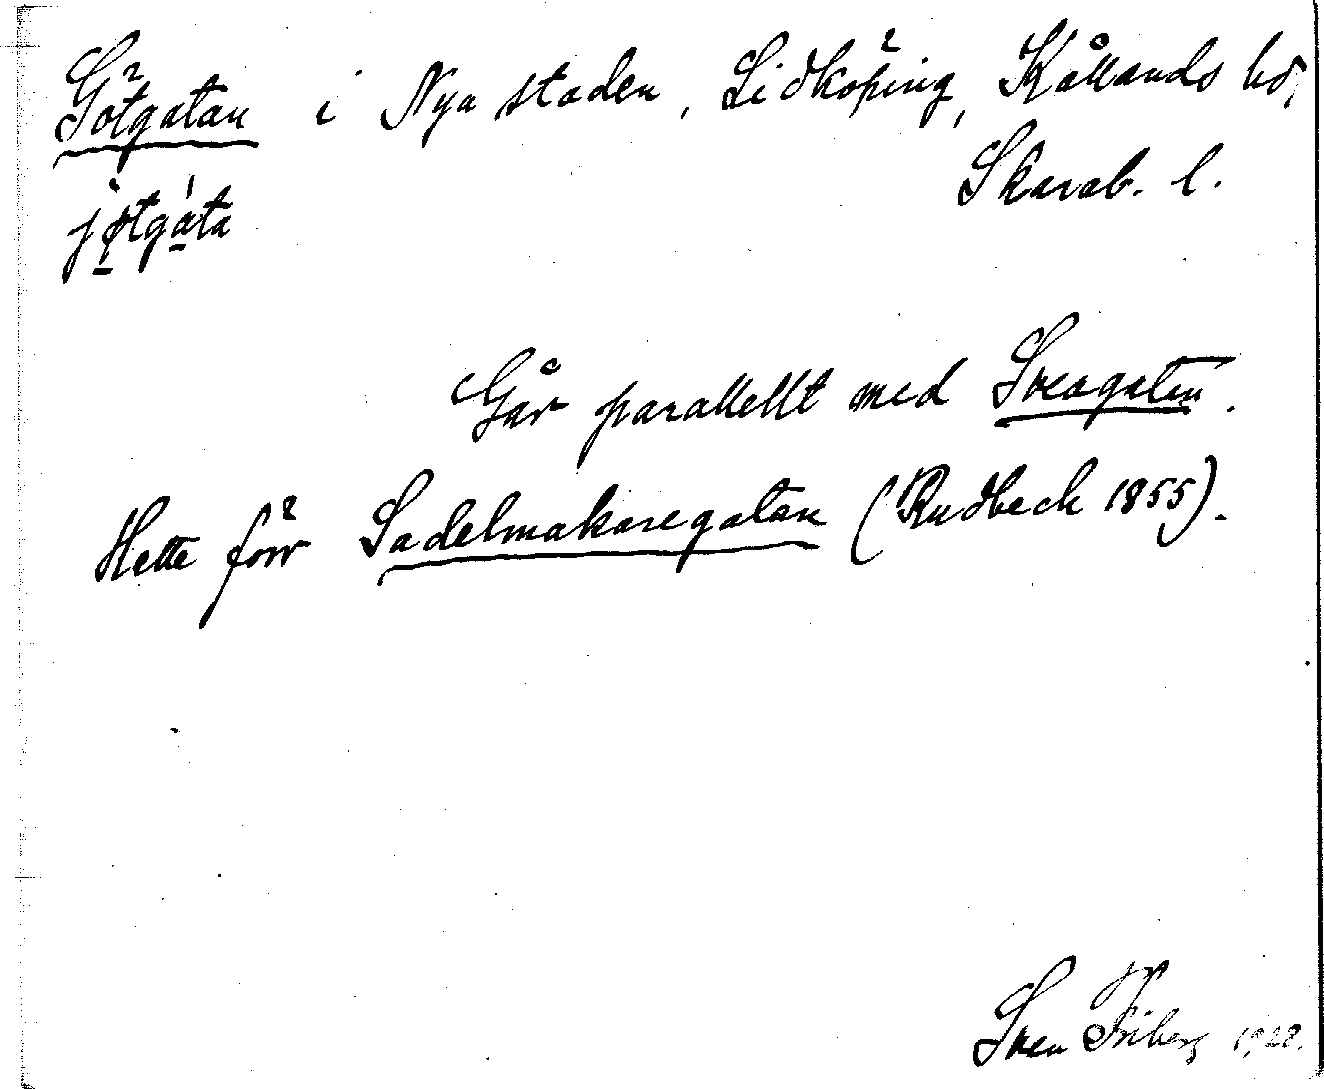 Götgatan i Nya staden, Lidköping, Kållands hd,
Skarab. l.
jøtgata
Går parallellt med Sveagatan.
Hette förr Sadelmakaregatan (Rudbeck 1855).
Sven Friberg 1928.